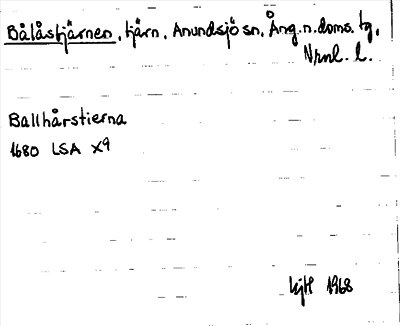 Bålåstjärnen, tjärn. Anundsjö sn. Ång.n.doms. tg.
Nrnl. l.
Ballhårstierna
1680 LSA X9
1968